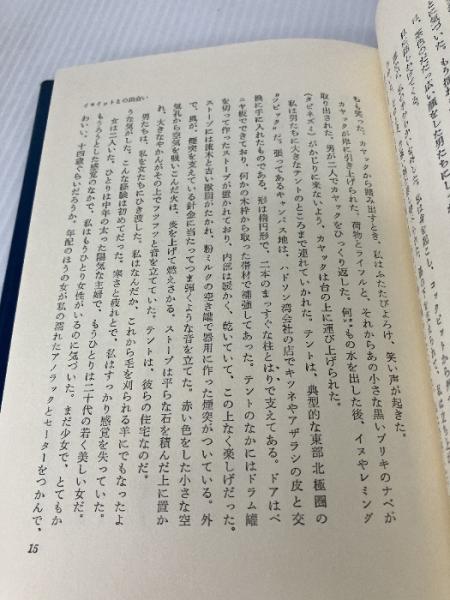 イヌイットとの出会い
もも笑った。カヤックから踏み出すとき、私はふたたびよろけ、笑い声が起きた。
カヤックが陸に引き上げられた。荷物とライフルと、それからあの小さな黒いブリキのナベが
取り出された。男が二人でカヤックをひっくり返した。何もの水を出した後、イヌやレミング
（タビネズミ）がかじりに来ないよう、カヤックは台の上に運び上げられた。
私は男たちに大きなテントのところまで連れていかれた。テントは、典型的な東部北極圏の
"ツピック"だ。張ってあるキャンバス地は、ハドソン湾会社の店でキツネやアザラシの皮と交
換に手に入れたものである。形は楕円形で、二本のまっすぐな柱とはりで支えてある。ドアはベ
ニヤ板でできており、何かの木枠から取った帯材で補強してあった。テントのなかにはドラム罐
を切って作ったストーブが置かれており、内部は暖かく、乾いていて、この上なく楽しげだった。
ストーブには流木と古い獣脂がたかれ、粉ミルクの空き罐で器用に作った煙突がついている。外
で、風が、煙突を支えている針金に当たってつま弾くような音を立てた。赤い色をした小さな空
気孔から空気を吸いこんだ火は、炎を上げて燃えさかる。ストーブは平らな石を積んだ上に置か
れ、大きなやかんがその上でフツフツと音を立てていた。テントは、彼らの住宅なのだ。
男たちは、私を女たちにひき渡した。私はなんだか、これから毛を刈られる羊にでもなったよ
うな気がした。こんな経験は初めてだった。寒さと疲れとで、私はすっかり感覚を失っていた。
女は二人いた。ひとりは中年の太った陽気な主婦で、もうひとりは二十代の若く美しい女だ。
もうろうとした感覚のなかで、私はもうひとり女性がいるのに気づいた。まだ少女で、とてもか
わいい。十四歳ぐらいだろうか。年配のほうの女が私の濡れたアノラックとセーターをつかんで、
15